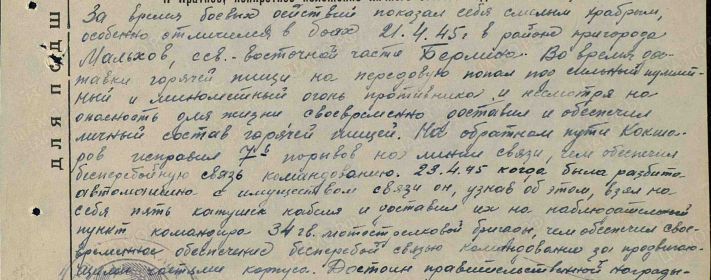 За время боевых действий показал себя смелым храбрым,
особенно отличился в боях 21.4.45 г. в районе пригорода
Мальхов, сев.-восточной части Берлина. Во время дос-
тавки горячей пищи на передовую попал под сильный пулемет-
ный и минометный огонь противника и несмотря на
опасность для жизни своевременно доставил и обеспечил
личный состав горячей пищей. На обратном пути Кокша-
ров исправил 7 порывов на линии связи, чем обеспечил
бесперебойную связь командованию. 23.4.45 когда была разбита
автомашина с имуществом связи он, узнав об этом, взял на
себя пять катушек кабеля и доставил их на наблюдательный
пункт командира 34 гв. мотострелковой бригады, чем обеспечил свое-
временное обеспечение бесперебой связью командование за продвигаю-
щимися частями корпуса. Достоин правительственной награды-
ДЛЯ ПСДШ